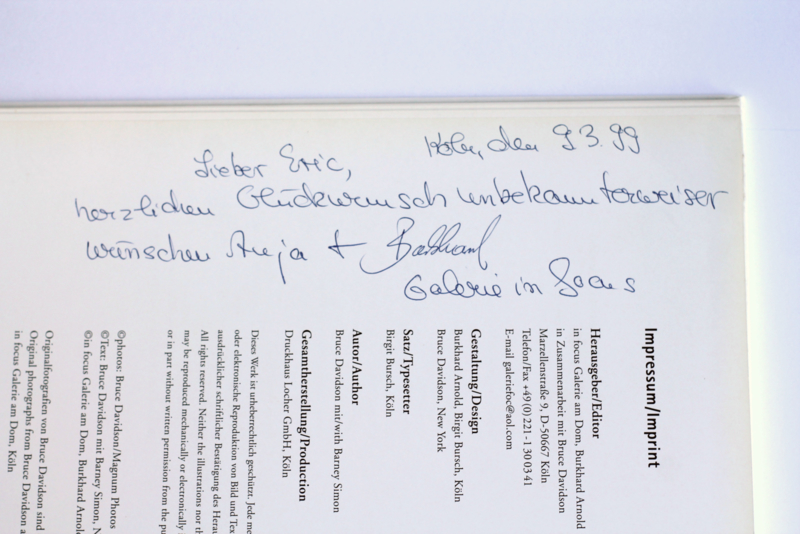 Köln, den 9.3.99
Lieber Eric,
herzlichen Glückwunsch unbekannterweise
wünschen Anja + Burkhard
Galerie in Focus
Impressum/Imprint
Herausgeber/Editor
in focus Galerie am Dom, Burkhard Arnold
in Zusammenarbeit mit Bruce Davidson
Marzellenstraße 9, D-50667 Köln
Telefon/Fax +49 (0) 221 - 1 30 03 41
E-mail galeriefoc@aol.com
Gestaltung/Design
Burkhard Arnold, Birgit Bursch, Köln
Bruce Davidson, New York
Satz/Typesetter
Birgit Bursch, Köln
Autor/Author
Bruce Davidson mit/with Barney Simon
Gesamtherstellung/Production
Druckhaus Locher GmbH, Köln
Dieses Werk ist urheberrechtlich geschützt. Jede me
oder elektronische Reproduktion von Bild und Tex
ausdrücklicher schriftlicher Bestätigung des Herau
All rights reserved. Neither the illustrations nor th
may be reproduced mechanically or electronically
or in part without written permission from the pu
©photos: Bruce Davidson/Magnum Photos
©Text: Bruce Davidson mit Barney Simon, N
©in focus Galerie am Dom, Burkhard Arnol
Originalfotografien von Bruce Davidson sind
Original photographs from Bruce Davidson a
in focus Galerie am Dom, Köln